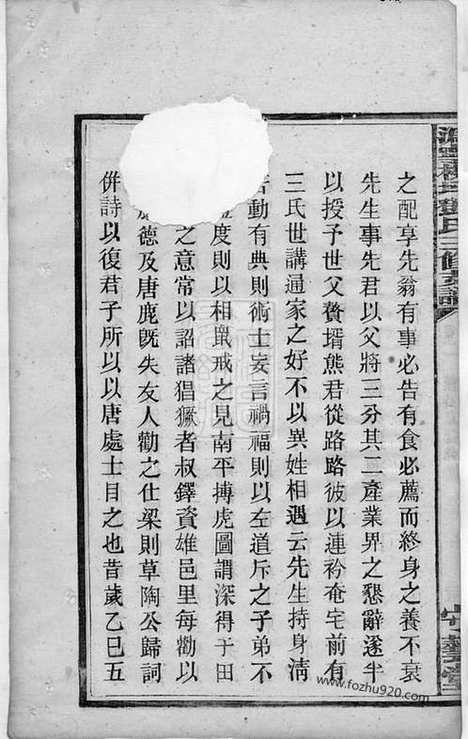 之配享先翁有事必告有食必薦而終身之養不衰
先生事先君以父將三分其二產業界之懇辭遂半
以授予世父贅壻熊君從路路彼以連衿奄宅前有
三氏世講通家之好不以異姓相遇云先生持身淸
動有典則術士妄言禍福則以左道斥之子弟不
度則以相䑕戒之見南平搏虎圖謂深得于田
之意常以詔諸猖獗者叔鐸資雄邑里每勸以
德及唐鹿旣失友人勸之仕梁則草陶公歸詞
併詩以復君子所以以唐處士目之也昔歲乙巳五
氏三修族譜
www.fozhu920.com